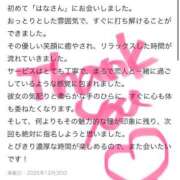 初めて「はなさん」にお会いしました。
おっとりとした雰囲気で、すぐに打ち解けることができました。
その優しい笑顔に癒やされ、リラックスした時間が流れていきました。
サービスはとても丁寧で、まるで恋人と一緒に過ごしているような感覚に包まれました。
彼女の気配りと柔らかな手のひらに、すぐに心も体も委ねたくなります。
そして、何よりもその魅力的な瞳が印象に残り、次回も絶対に指名しようと思いました。
とびきり濃厚な時間が楽しめるので、また会いたいです！
掲載日：2025年12月30日
Thank
you